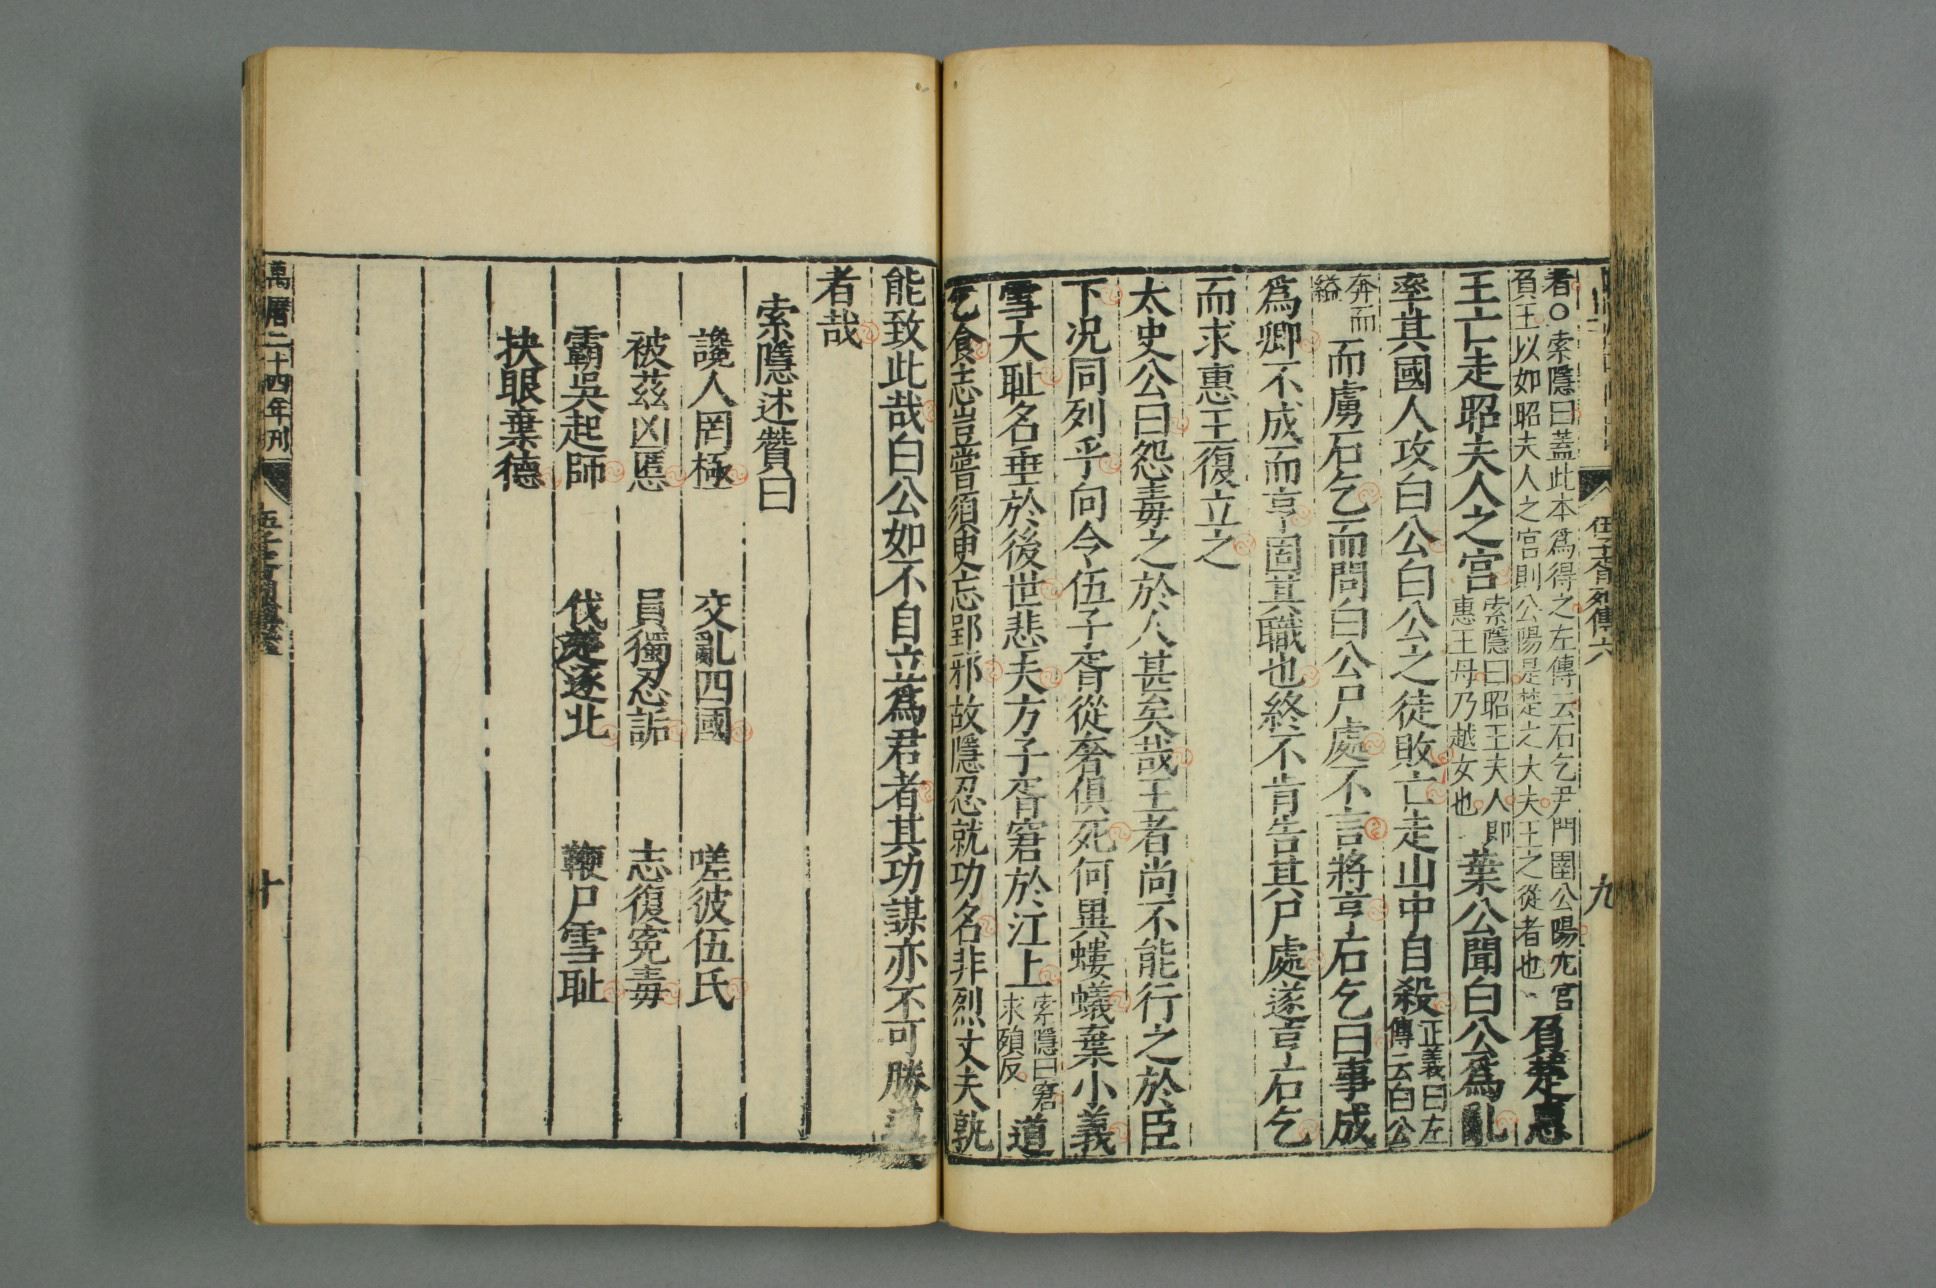 伍子胥列傳六
九
者○索隱曰蓋此本爲得之左傳云石乞尹門圉公陽穴宮
負王以如昭夫人之宮則公陽是楚之大夫王之從者也
負楚惠
王亡走昭夫人之宮
索隱曰昭王夫人即
惠王母乃越女也
葉公聞白公爲亂
率其國人攻白公白公之徒敗亡走山中自殺
正義曰左
傳云白公
奔而
縊
而虜石乞而問白公尸處不言將亨石乞曰事成
爲卿不成而亨固其職也終不肯告其尸處遂亨石乞
而求惠王復立之
太史公曰怨毒之於人甚矣哉王者尚不能行之於臣
下况同列乎向令伍子胥從奢俱死何異螻蟻棄小義
雪大耻名垂於後世悲夫方子胥窘於江上
索隱曰窘
求殞反
道
乞食志豈嘗須臾忘郢邪故隱忍就功名非烈丈夫孰
能致此哉白公如不自立爲君者其功謀亦不可勝道
者哉
索隱述贊曰
讒人罔極 交亂四國 嗟彼伍氏
被茲凶慝 員獨忍詬 志復寃毒
霸吳起師 伐楚逐北 鞭尸雪耻
抉眼棄德
萬曆二十四年刊
十